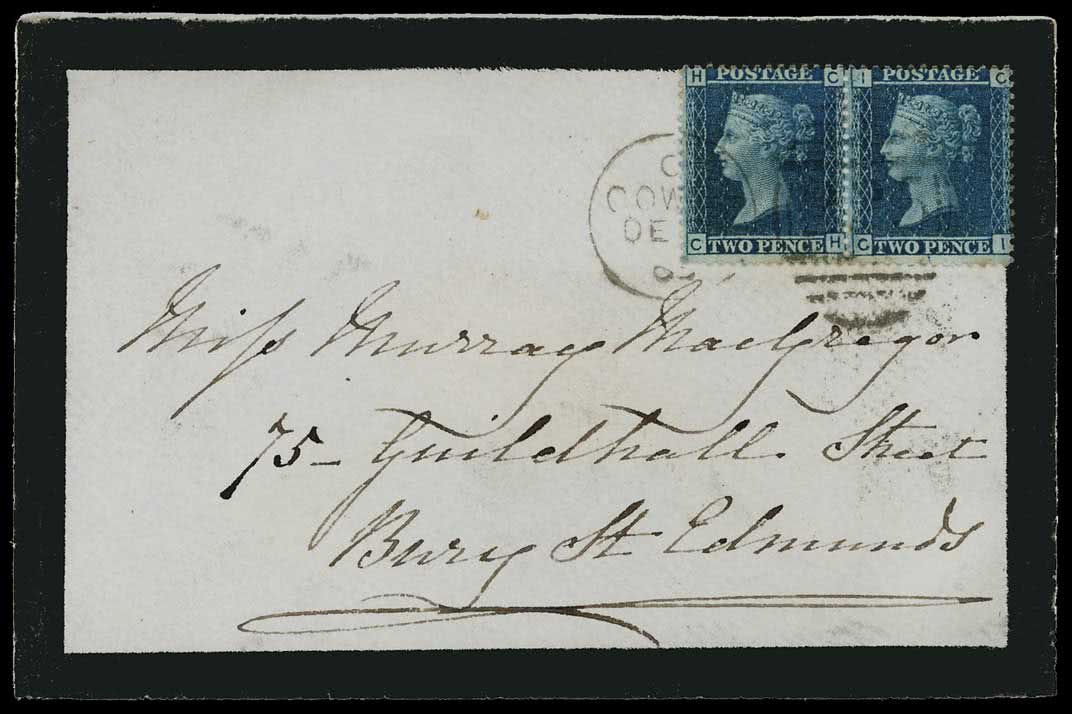 H POSTAGE C I POSTAGE C
C TWO PENCE H C TWO PENCE I
C
COW
DE
Miss Murray MacGregor
75 - Guildhall Street
Bury St Edmunds